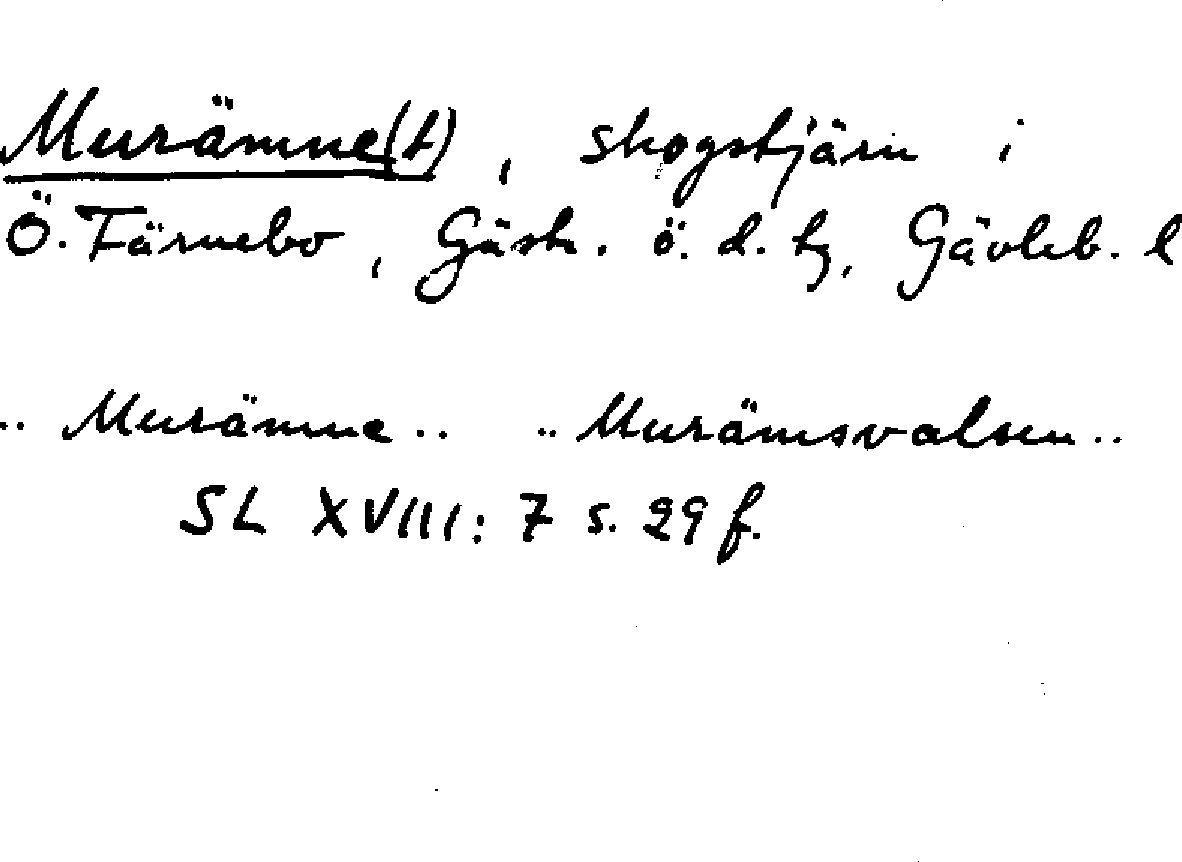 Murämne(t), skogstjärn i
Ö. Färnebo, Gästr. ö. d. tg, Gävleb. l
.. Murämne .. .. Murämsvalsen ..
SL XVIII: 7 s. 29 f.